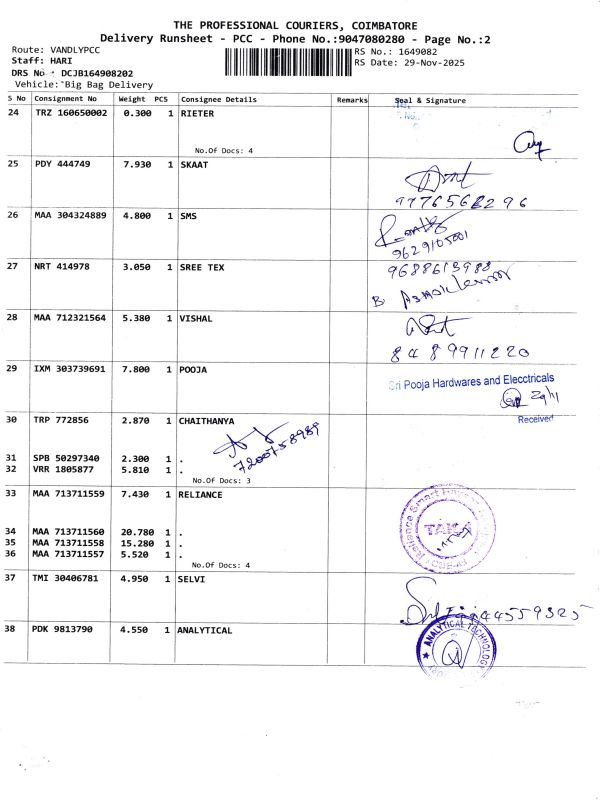 THE PROFESSIONAL COURIERS, COIMBATORE
Delivery Runsheet - PCC - Phone No.:9047080280 - Page No.:2
Route: VANDLYPCC
RS No.: 1649082
Staff: HARI
RS Date: 29-Nov-2025
DRS No : DCJB164908202
Vehicle: Big Bag Delivery
S No Consignment No Weight PCS Consignee Details Remarks Seal & Signature
24 TRZ 160650002 0.300 1 RIETER
No.Of Docs: 4
25 PDY 444749 7.930 1 SKAAT
9776568296
26 MAA 304324889 4.800 1 SMS
9629105001
27 NRT 414978 3.050 1 SREE TEX
9688613988
B
28 MAA 712321564 5.380 1 VISHAL
8489911220
29 IXM 303739691 7.800 1 POOJA
Sri Pooja Hardwares and Elecctricals
29/11
Received
30 TRP 772856 2.870 1 CHAITHANYA
7200758989
31 SPB 50297340 2.300 1 .
32 VRR 1805877 5.810 1 .
No.Of Docs: 3
33 MAA 713711559 7.430 1 RELIANCE
Reliance Smart
34 MAA 713711560 20.780 1 .
35 MAA 713711558 15.280 1 .
36 MAA 713711557 5.520 1 .
No.Of Docs: 4
37 TMI 30406781 4.950 1 SELVI
38 PDK 9813790 4.550 1 ANALYTICAL
ANALYTICAL TECHNOLOGY